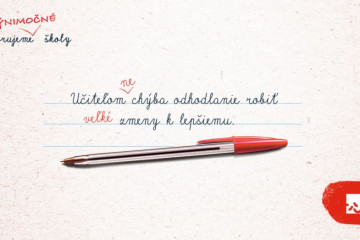 ÝNIMOČNÉ
rujeme školy
ne
Učiteľom chýba odhodlanie robiť
veľké zmeny k lepšiemu.